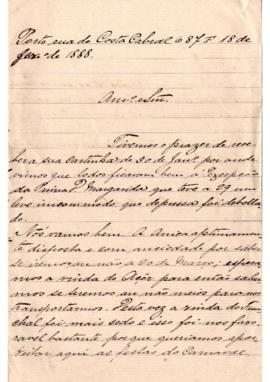 Porto rua de Costa Cabral 687. 18 de
fevº de 1888.
Amº e Snr.
Tivemos o prazer de rece-
ber a sua Cartinha de 30 de Janº por onde
vimos que todos ficaram bem à Excepção
da Prima D. Margarida que teve a 29 um
leve incommodo, que depressa foi debella-
do.
Nós vamos bem. A Anica optimamente
disposta e com anciedade por saber
se a vinda de Açor
mos se teremos ou não meio para nos
transportarmos. D'esta vez a vinda do Fun-
chal foi mais cedo e isso foi-nos favo-
ravel bastante, porque queriamos apro-
veitar aqui as festas do Carnaval